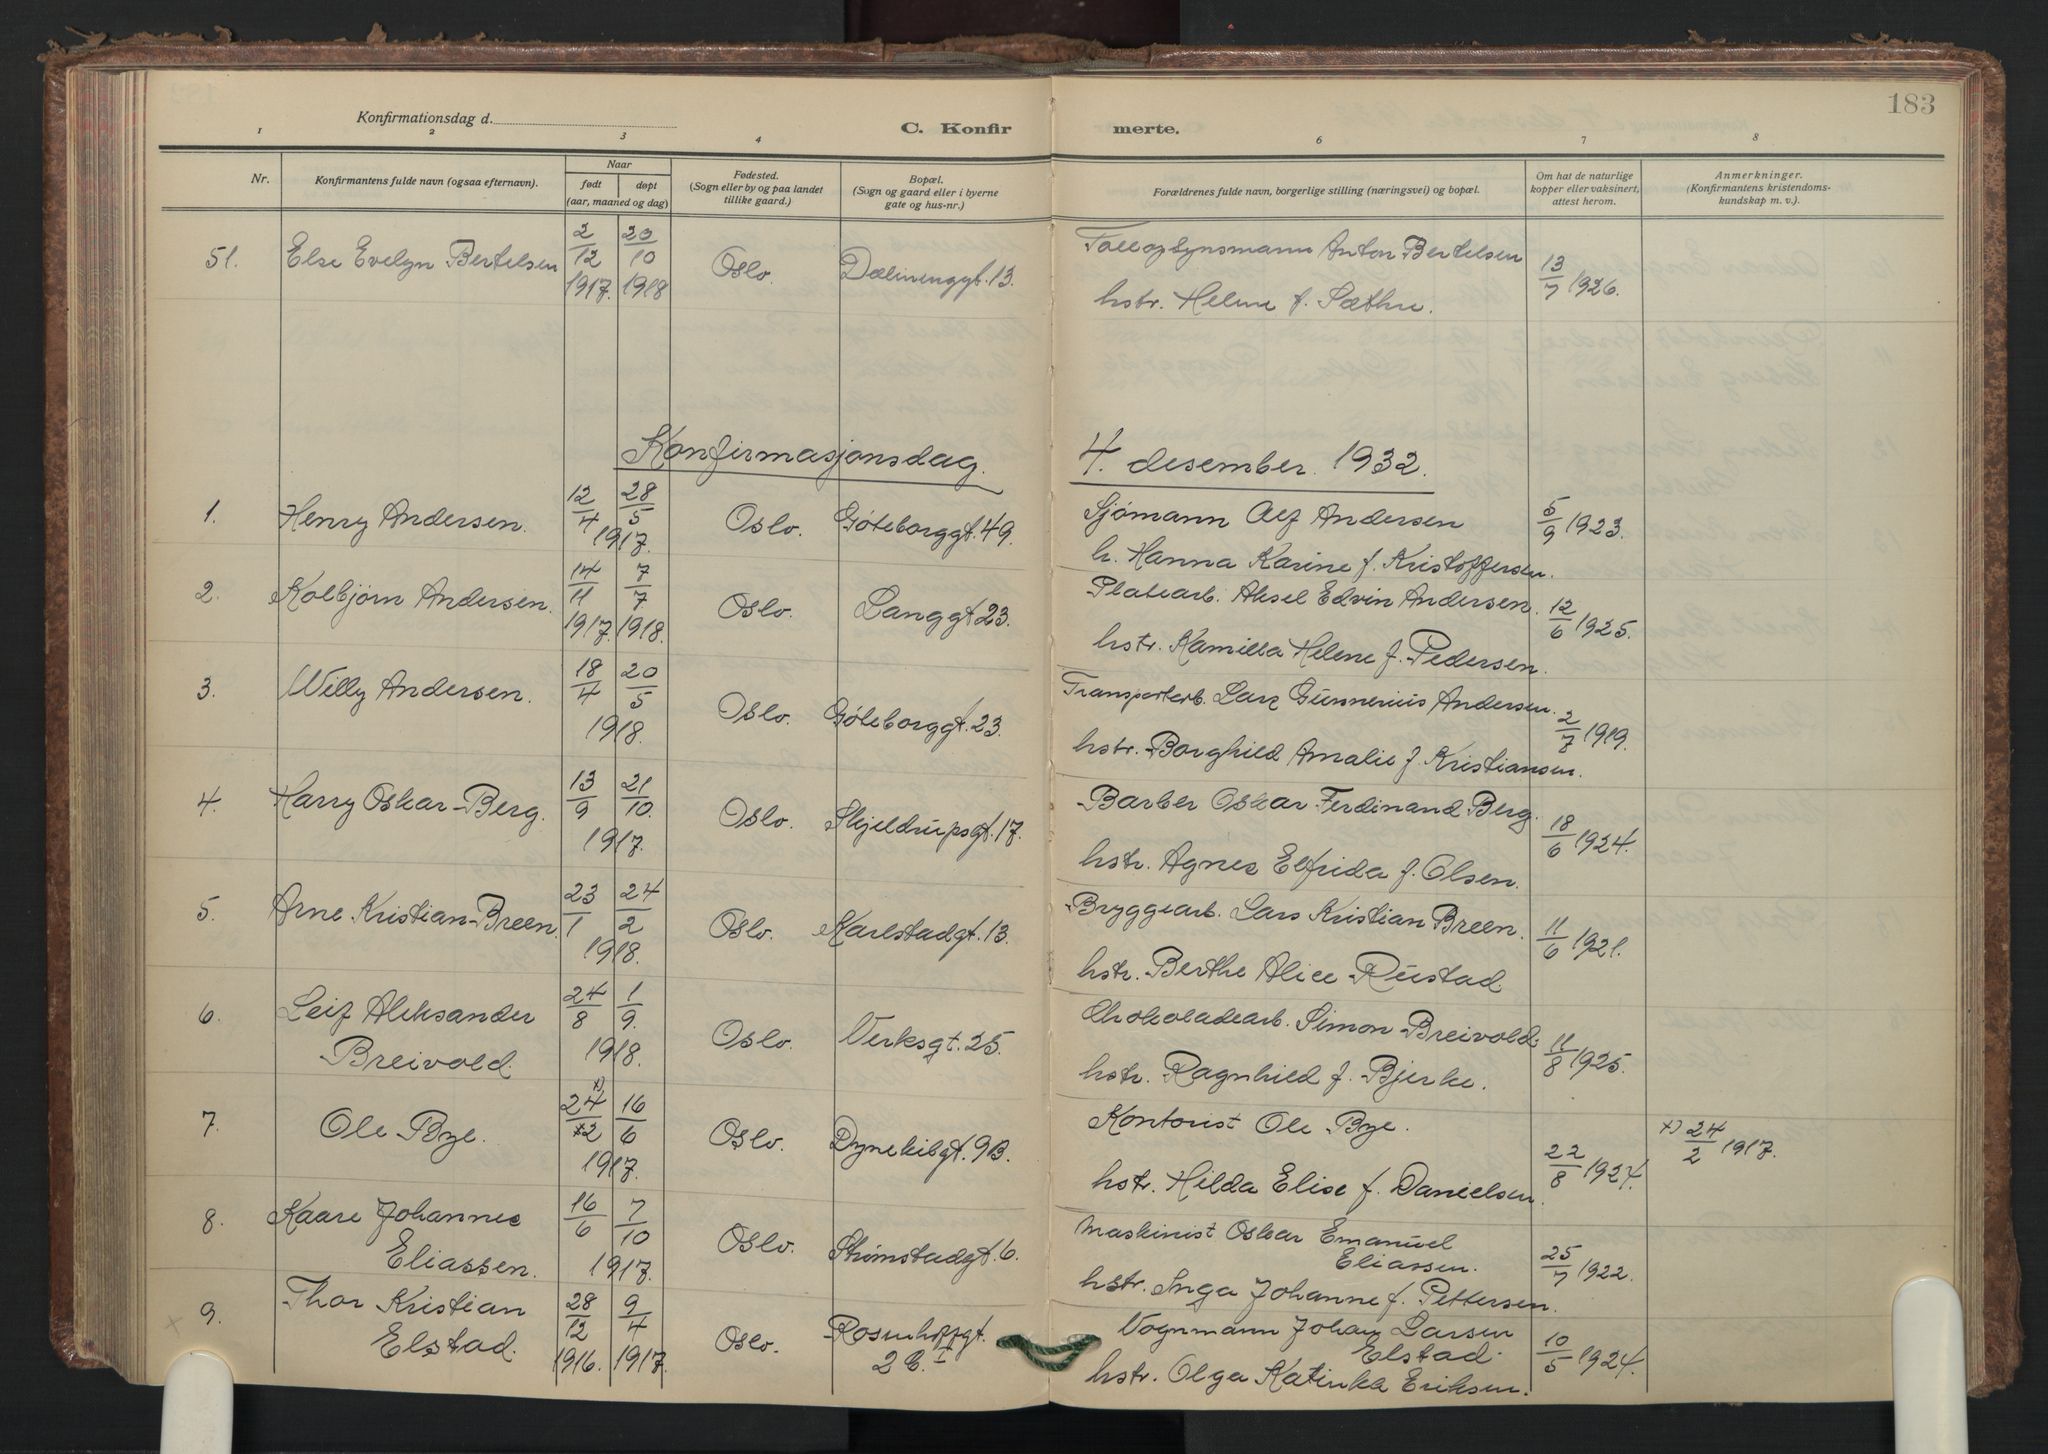 183
Konfirmationsdag d.
C. Konfir merte.
1 2 3 4 5 6 7 8
Nr.
Konfirmantens fulde navn (ogsaa efternavn).
Naar
født døpt
(aar, maaned og dag)
Fødested.
(Sogn eller by og paa landet
tillike gaard.)
Bopæl.
(Sogn og gaard eller i byerne
gate og hus-nr.)
Forældrenes fulde navn, borgerlige stilling (næringsvei) og bopæl.
Om hat de naturlige
kopper eller vaksinert,
attest herom.
Anmerkninger.
(Konfirmantens kristendoms-
kundskap m. v.).
51. Else Evelyn Bertelsen 2/12 1917. 23/10 1918 Oslo. Dælenenggt. 13.
Tolloppsynsmann Anton Bertelsen
hstr. Helene f. Sæthre. 13/7 1926.
Konfirmasjonsdag. 4. desember 1932.
1. Henry Andersen. 12/4 28/5 1917. Oslo. Göteborggt. 49.
Sjømann Alf Andersen
h. Hanna Karine f. Kristoffersen. 5/9 1923.
2. Kolbjörn Andersen. 14/11 1917. 7/7 1918. Oslo. Langgt 23.
Platearb. Aksel Edvin Andersen.
hstr. Kamilla Helene f. Pedersen. 12/6 1925.
3. Willy Andersen. 18/4 20/5 1918. Oslo. Göteborggt. 23.
Transportarb. Lars Gunnerius Andersen.
hstr. Borghild Amalie f. Kristiansen. 2/7 1919.
4. Harry Oskar Berg. 13/9 21/10. 1917. Oslo. Skjeldrupsgt. 17.
Barber Oskar Ferdinand Berg.
hstr. Agnes Elfrida f. Olsen. 18/6 1924.
5. Arne Kristian Breen. 23/1 24/2 1918. Oslo. Karlstadgt. 13.
Bryggearb. Lars Kristian Breen.
hstr. Berthe Alice Rustad. 11/6 1921.
6. Leif Aleksander
Breivold. 24/8 1/9. 1918. Oslo. Verksgt. 25.
Chokoladearb. Simon Breivold.
hstr. Ragnhild f. Bjerke. 11/8 1925.
7. Ole Bye. x) 24/2 16/6 1917. Oslo. Dynekilgt. 9B.
Kontorist Ole Bye.
hstr. Hilda Elise f. Danielsen. 22/8 1924. x) 24/2 1917.
8. Kaare Johannes
Eliassen. 16/6 7/10 1917. Oslo. Strömstadgt. 6.
Maskinist Oskar Emanuel
Eliassen.
hstr. Inga Johanne f. Pettersen. 25/7 1922.
x 9. Thor Kristian
Elstad. 28/12 1916. 9/4 1917. Oslo. Rosenhoffgt.
2 b. I
Vognmann Johan Larsen
Elstad.
hstr. Olga Katinka Eriksen. 10/5 1924.